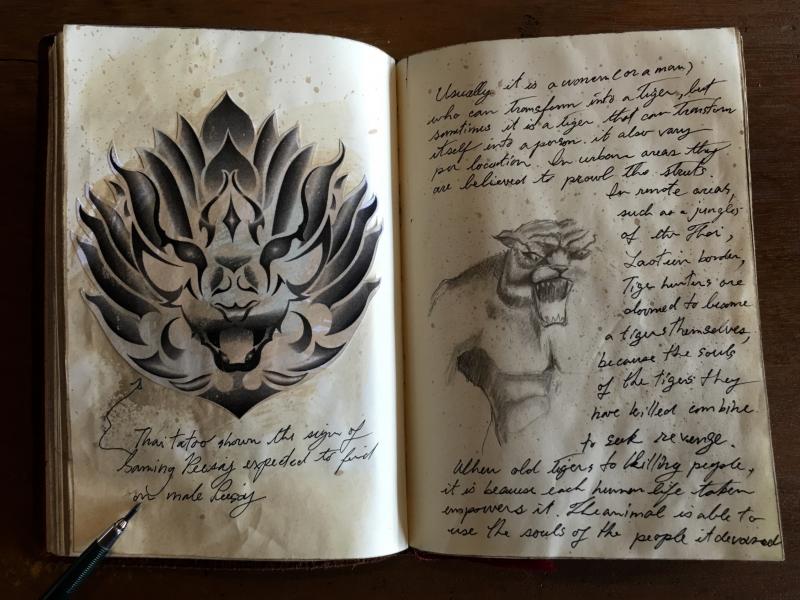 Thai tatoo shown the sign of
Saming Peesay expected to find
on male Peesay
Usually it is a women (or a man)
who can transform into a tiger, but
sometimes it is a tiger that can transform
itself into a person. it also vary
por location. In urban areas they
are believed to prowl the struts.
In remote areas,
such as a jungles
of the Thai,
Laotien border,
Tiger hunters are
doomed to become
a tigers themselves,
because the souls
of the tigers they
have killed combine
to seek revenge.
When old tigers to killing people,
it is because each human life taken
empowers it. The animal is able to
use the souls of the people it devoured